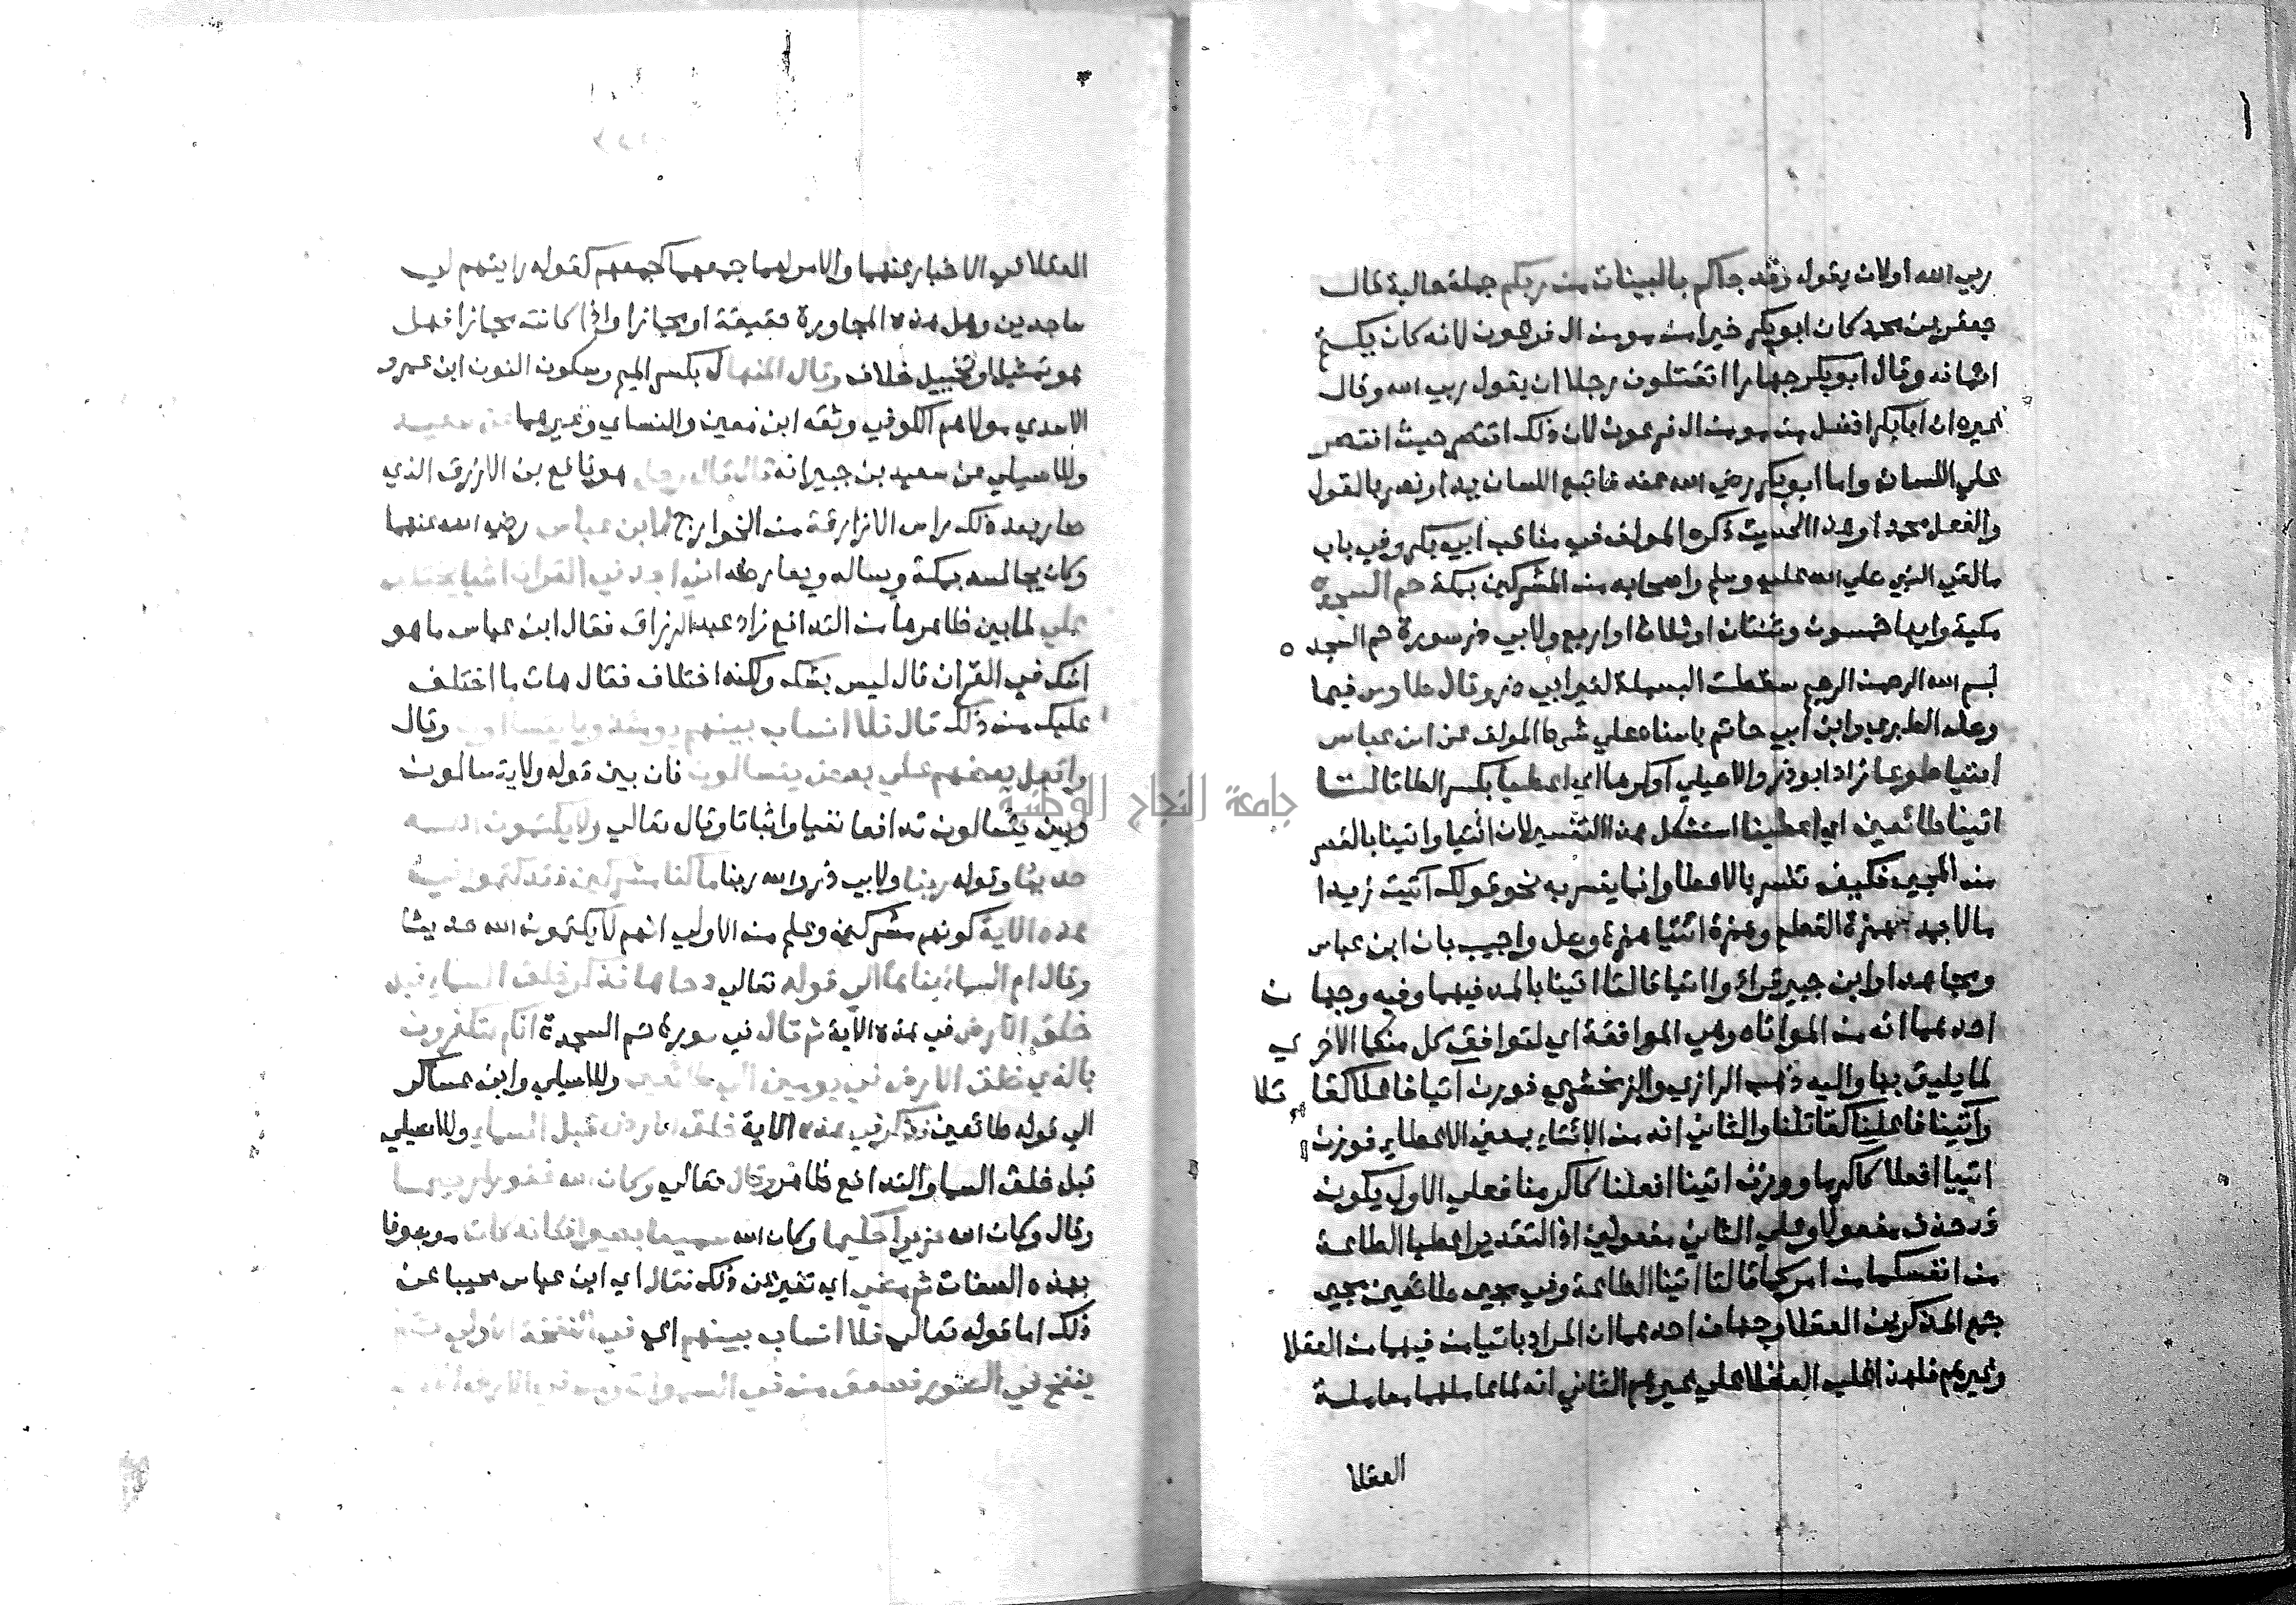 ربي الله اولان يقول وقد جاكم بالبينات من ربكم جملة حالية قال
جعفر بن محمد كان ابو بكر خيرا من مومن ال فرعون لانه كان يكتم
ايمانه وقال ابو بكر جهارا اتقتلون رجلا ان يقول ربي الله وقال
غيره ان ابا بكر افضل من مومن ال فرعون لان ذلك اقتصر حيث انتصر
علي اللسان واما ابو بكر رضي الله عنه فاتبع اللسان يدا ونصر بالقول
والفعل محمدا وهذا الحديث ذكره المولف في مناقب ابي بكر وفي باب
مالقي النبي صلي الله عليه وسلم واصحابه من المشركين بمكة حم السجدة
مكية وايها خمسون وثنتان او ثلاث او اربع ولابي ذر سورة حم السجدة
بسم الله الرحمن الرحيم سقطت البسملة لغير ابي ذر وقال طاوس فيما
وصله الطبري وابن ابي حاتم باسناد علي شرط المولف عن ابن عباس
ايتيا طوعا زاد ابو ذر والاصيلي او كرها اي اعطيا بكسر الطا قالتا
اتينا طائعين اي اعطينا استشكل هذا التفسير لان ائتيا واتينا بالقصر
من المجي فكيف تفسر بالاعطا وانما يفسر به نحو قولك آتيت زيدا
مالا بمد همزة القطع وهمزة ائتيا همزة وصل واجيب بان ابن عباس
ومجاهدا وابن جبير قراوا اتيا قالتا اتينا بالمد فيهما وفيه وجهان
احدهما انه من المواتاه وهي الموافقة اي لتوافق كل منكما الاخري
لما يليق بها واليه ذهب الرازي والزمخشري فوزن آتيا فاعلا كقاتلا
وآتينا فاعلنا كقاتلنا والثاني انه من الايتاء بمعني الاعطاء فوزن
اتييا افعلا كاكرما ووزن اتينا افعلنا كاكرمنا فعلي الاول يكون
قد حذف مفعولا وعلي الثاني مفعولين اذ التقدير اعطيا الطاعة
من انفسكما من امركما قالتا اتينا الطاعة وفي مجي طائعين مجي
جمع المذكرين العقلا وجهان احدهما ان المراد باتيا من فيهما من العقلا
وغيرهم فلهذا غلب العقلا علي غيرهم الثاني انه لما عاملهما معاملة
العقلا
العقلا في الاخبار عنهما والامر لهما جمعهما كجمعهم كقوله رايتهم لي
ساجدين وهل هذه المحاورة حقيقة او مجازا واذا كانت مجازا فهل
هو تمثيل او تخييل خلاف وقال المنهال بكسر الميم وسكون النون ابن عمرو
الاسدي مولاهم الكوفي وثقه ابن معين والنساي وغيرهما عن سعيد
وللاصيلي عن سعيد بن جبير انه قال قال رجل هو نافع بن الازرق الذي
صار بعد ذلك راس الازارقة من الخوارج لابن عباس رضي الله عنهما
وكان يجالسه بمكة ويساله ويعارضه اني اجد في القران اشيا تختلف
علي لما بين ظاهرها من التدافع زاد عبد الرزاق فقال ابن عباس ما هو
اشك في القران قال ليس بشك ولكنه اختلاف فقال هات ما اختلف
عليك من ذلك قال فلا انساب بينهم يومئذ ولا يتسالون وقال
واقبل بعضهم علي بعض يتسالون فان بين قوله ولا يتسالون
وبين يتسالون تدافعا نفيا واثباتا وقال تعالي ولا يكتمون الله
حديثا وقوله ربنا ولابي ذر والله ربنا ما كنا مشركين فقد كتموا في
هذه الاية كونهم مشركين وعلم من الاولي انهم لا يكتمون الله حديثا
وقال ام السماء بناها الي قوله تعالي دحاها فذكر خلق السماء قبل
خلق الارض في هذه الاية ثم قال في سورة حم السجدة ائنكم لتكفرون
بالذي خلق الارض في يومين الي طائعين وللاصيلي وابن عساكر
الي قوله طائعين فذكر في هذه الاية خلق الارض قبل السماء وللاصيلي
قبل خلق السما والتدافع ظاهر وقال تعالي وكان الله غفورا رحيما
وقال وكان الله عزيزا حكيما وكان الله سميعا بصيرا فكانه كان موصوفا
بهذه الصفات ثم مضي اي تغير عن ذلك فقال اي ابن عباس مجيبا عن
ذلك اما قوله تعالي فلا انساب بينهم اي في النفخة الاولي ثم
ينفخ في الصور فصعق من في السموات ومن في الارض
جامعة النجاح الوطنية